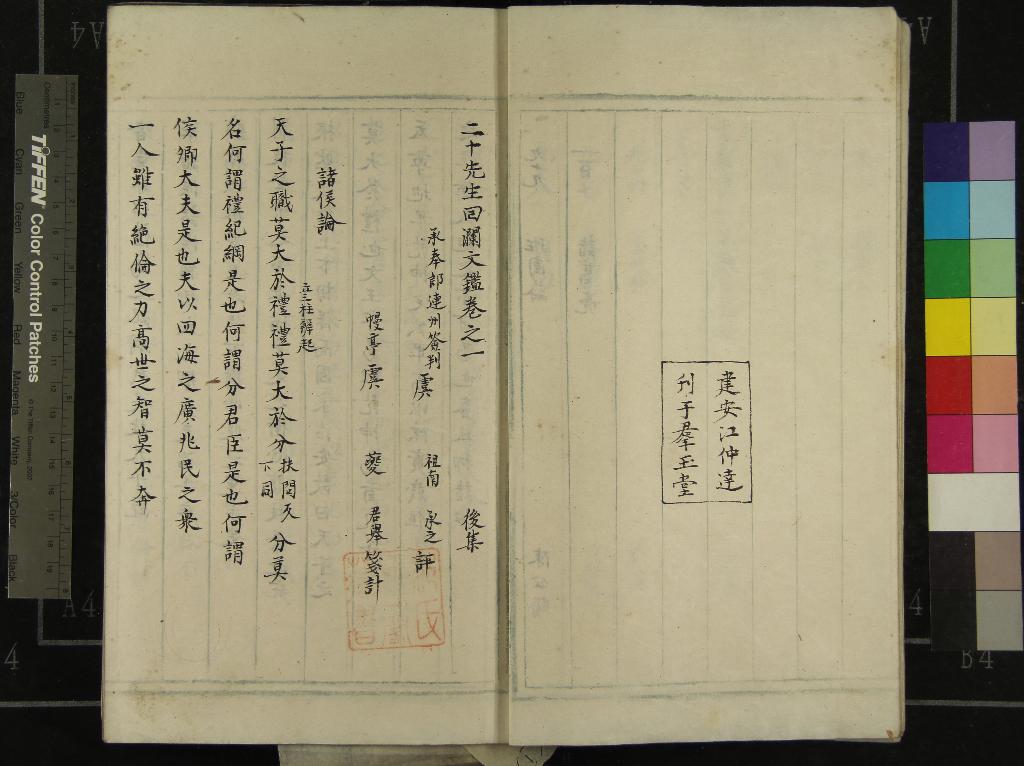 建安江仲達
刋于羣玉堂
二十先生回瀾文鑑卷之一 後集
承奉郎連州簽判虞 祖南 承之 評
幔亭虞 夔 君舉箋計
諸侯論
立三柱辭起
天子之職莫大於禮禮莫大於分扶問反下同分莫
名何謂禮紀綱是也何謂分君臣是也何謂
侯卿大夫是也夫以四海之廣兆民之衆
一人雖有絶倫之力高世之智莫不奔
TIFFEN Color Control Patches
© The Tiffen Company, 2007
Inches
Centimetres
Blue
Cyan
Green
Yellow
Red
Magenta
White
3/Color
Black
A4
A4
B4